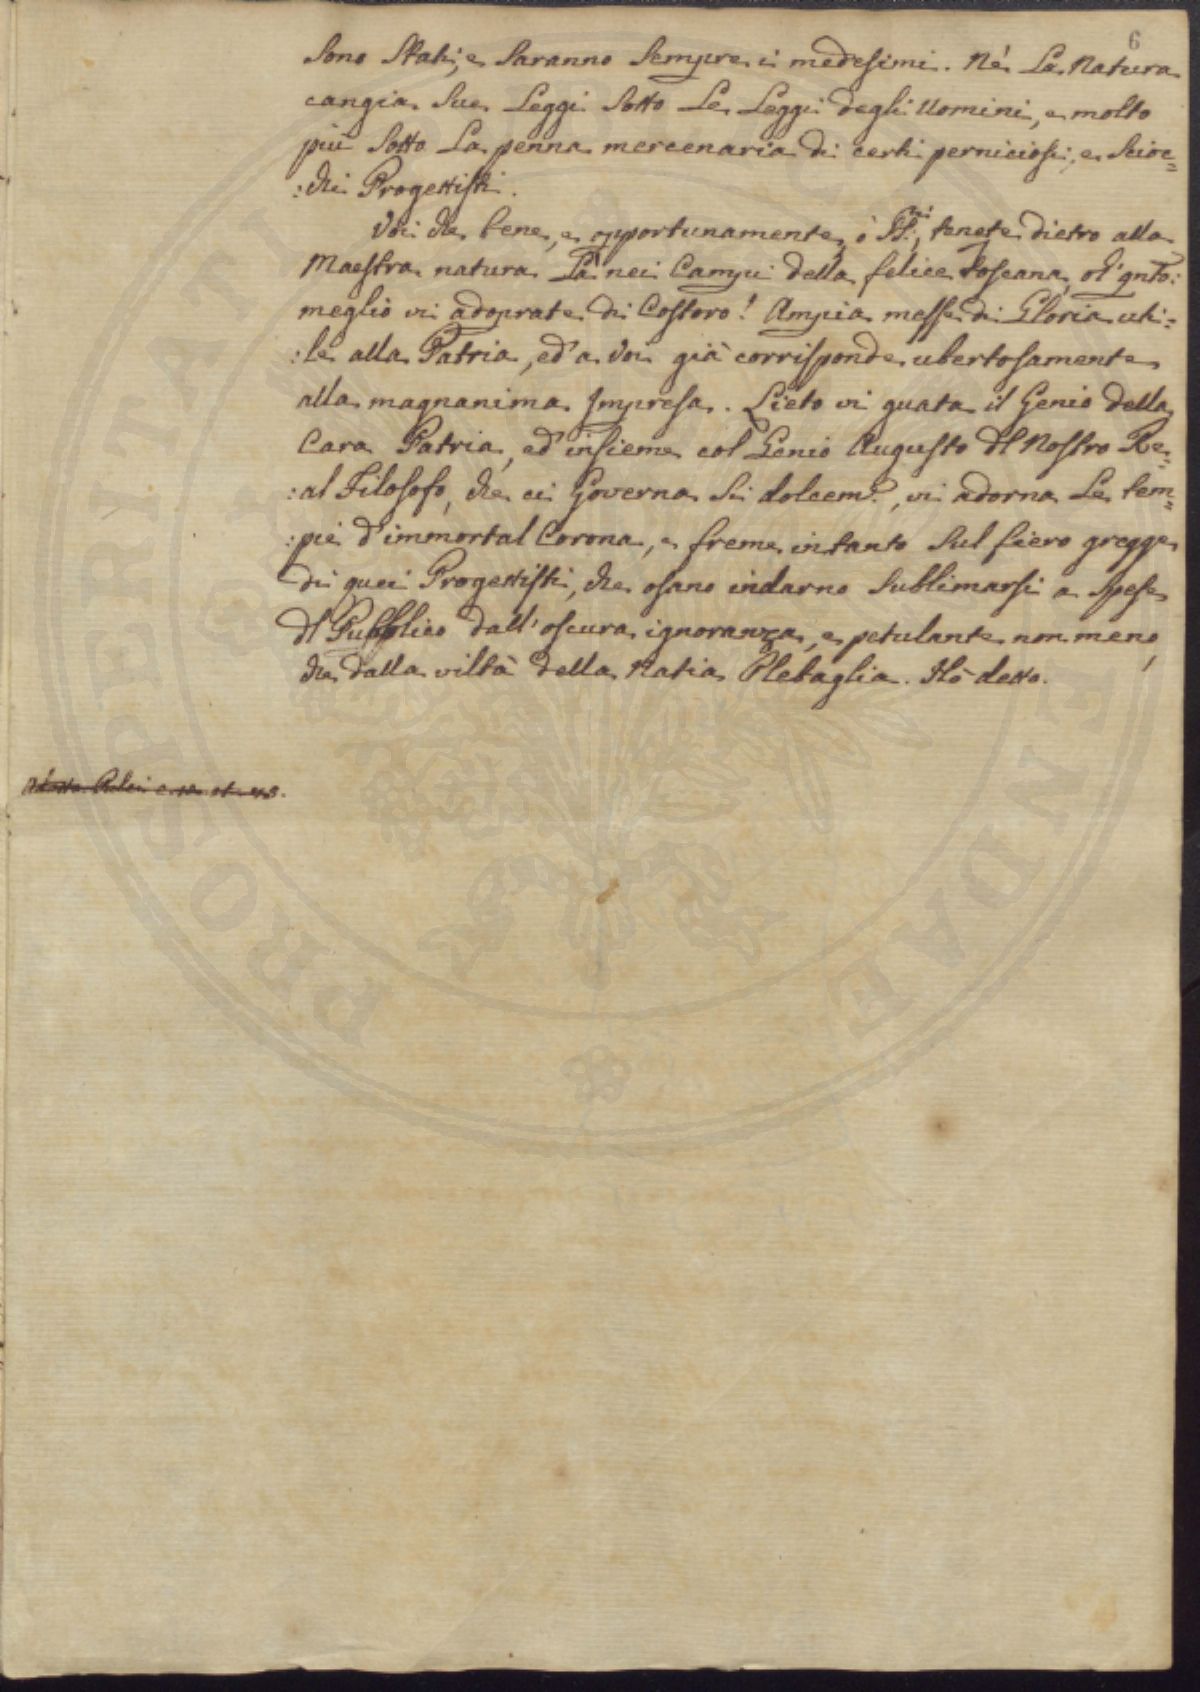 6
Sono Stati, e Saranno Sempre i medesimi. Né La Natura
cangia Sue Leggi Sotto Le Leggi degli Uomini, e molto
più Sotto La penna mercenaria di certi perniciosi, e Scioc=
:chi Progettisti.
Voi che bene, e opportunamente, ò tenete dietro alla
Maestra natura Là nei Campi della felice Toscana, oh qnto:
meglio vi adoprate di Costoro! Ampia messe di Gloria uti:=
:le alla Patria, ed' a Voi già corrisponde ubertosamente
alla magnanima Impresa. Lieto vi guata il Genio della
Cara Patria, ed' insieme col Genio Augusto del Nostro Re=
:al Filosofo, che ci Governa Sì dolcem.e, vi adorna Le tem=
:pie d'immortal Corona, e freme intanto Sul fiero gregge
di quei Progettisti, che osano indarno Sublimarsi a Spese
del Pubblico dall'oscura ignoranza, e petulante non meno,
che dalla viltà della Natia Plebaglia. Hò detto.
PROSPERITATI AUGENDAE